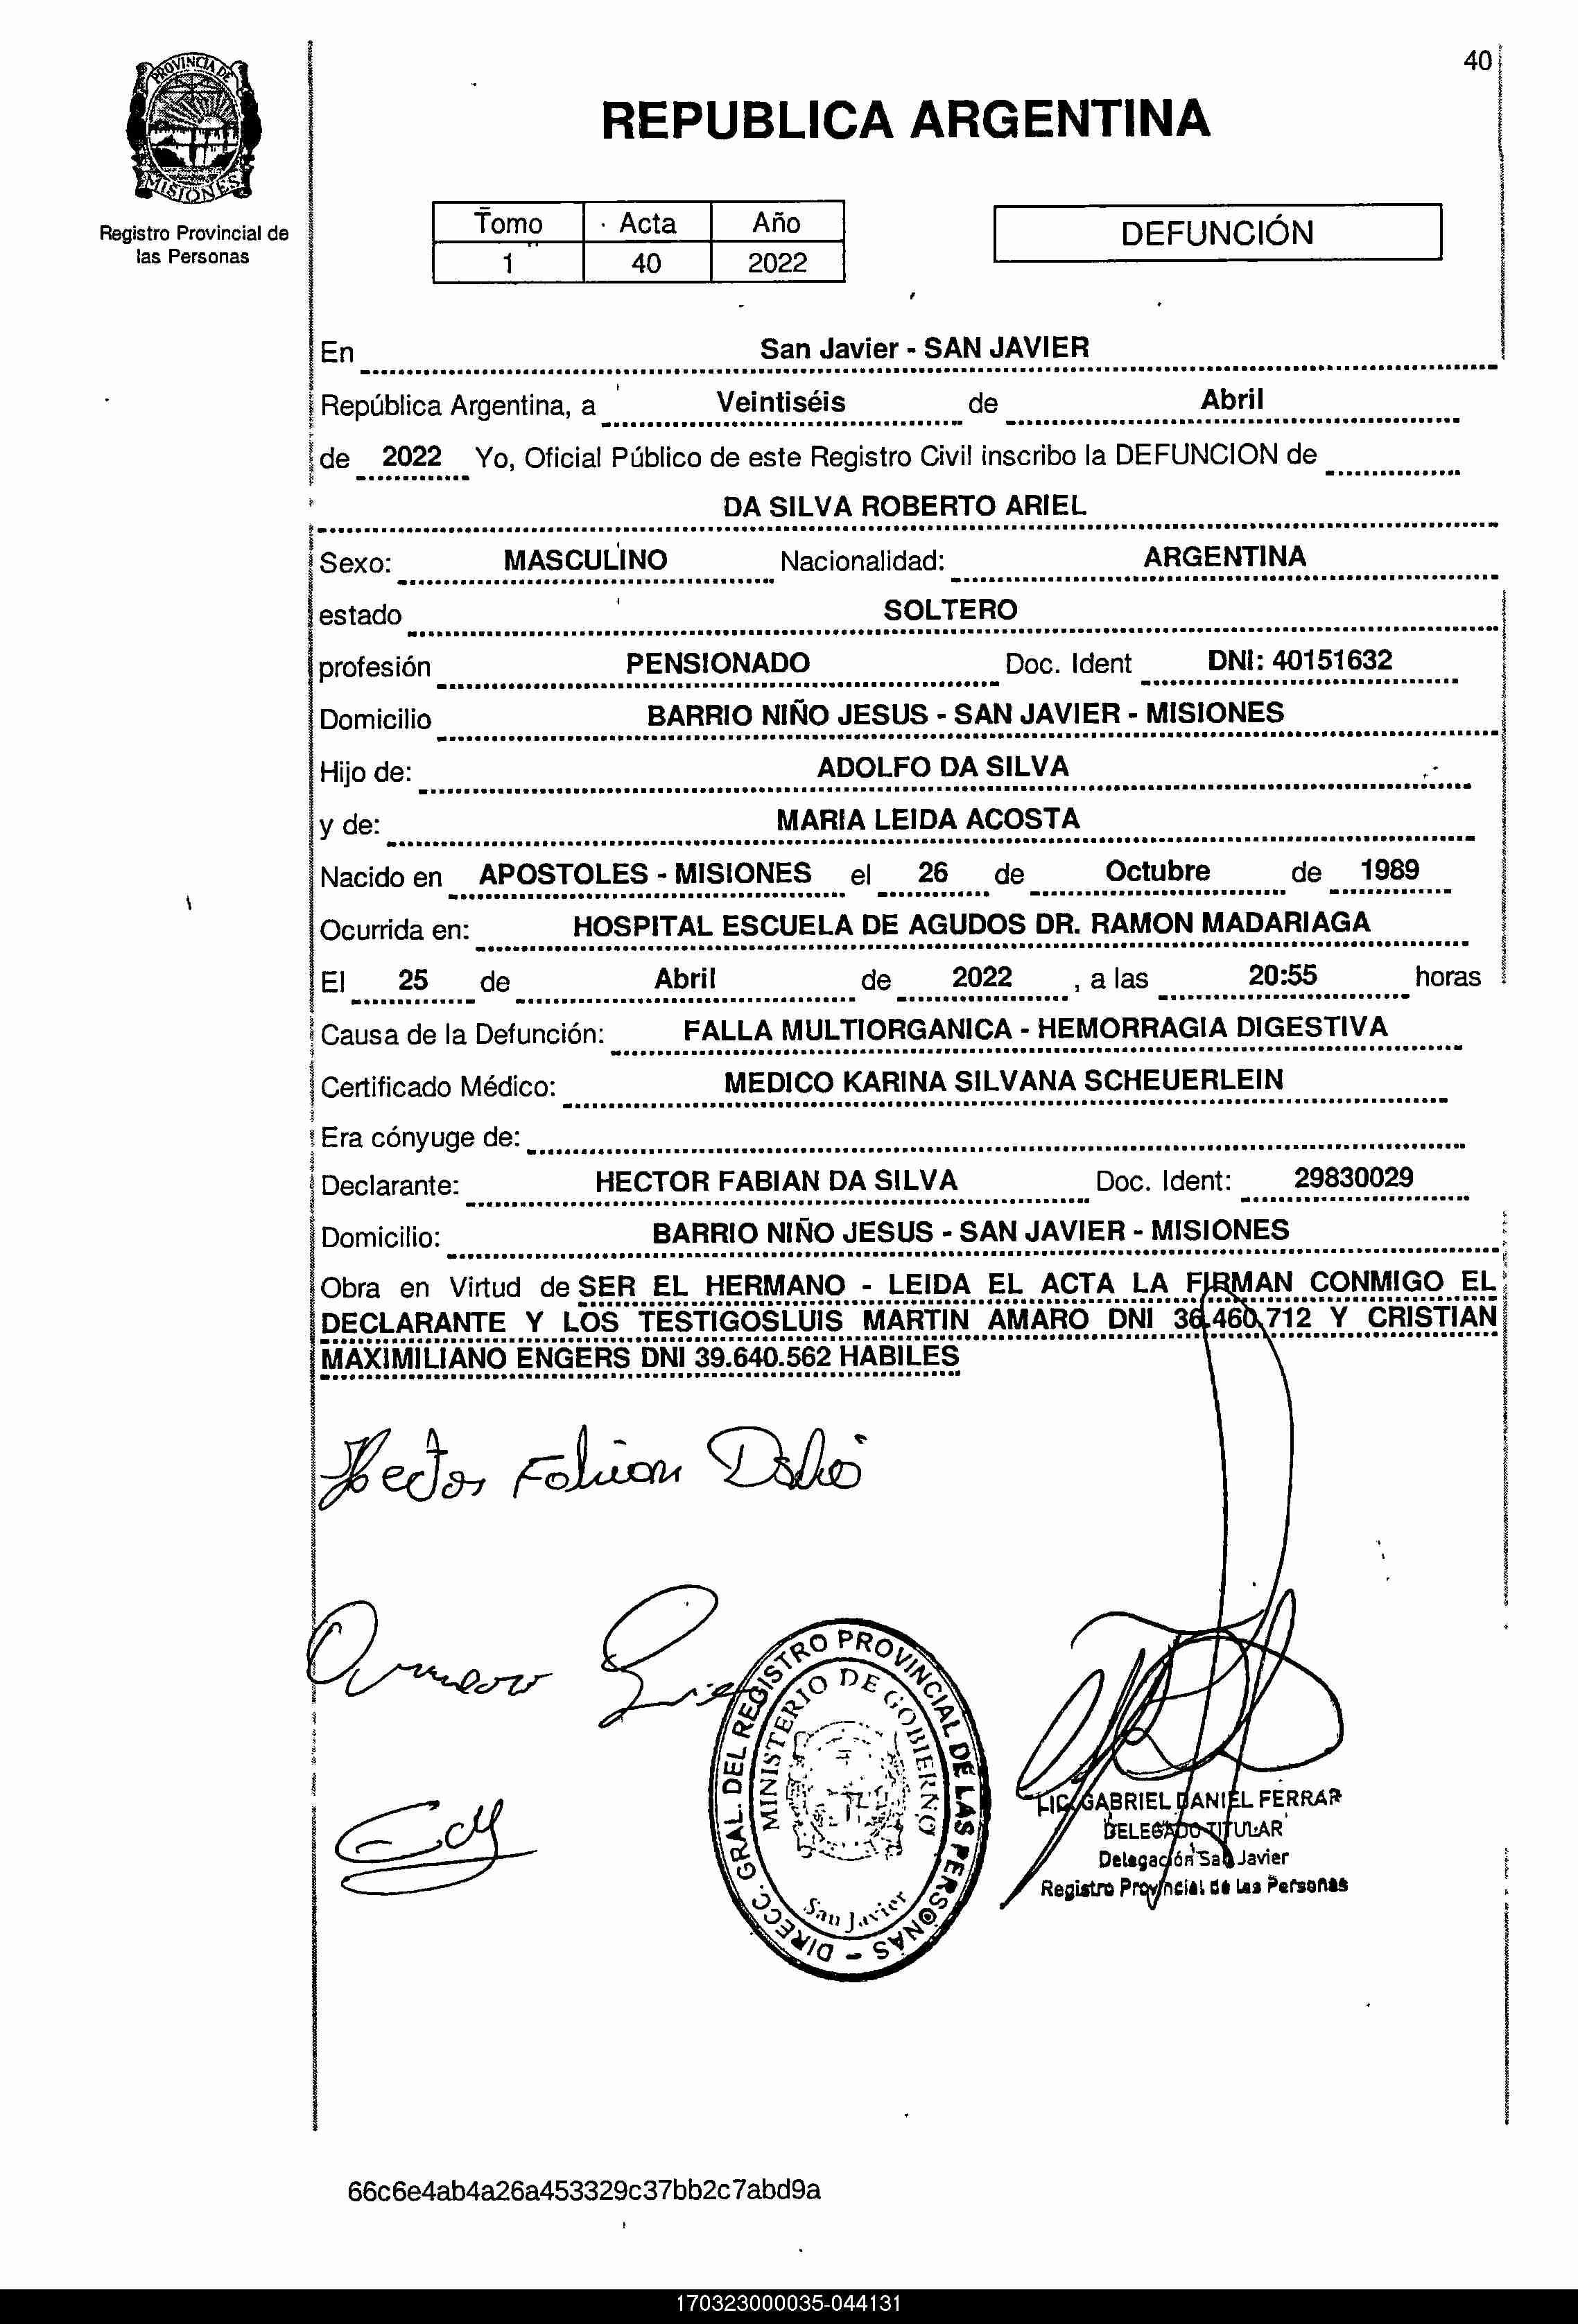 40
PROVINCIA DE
MISIONES
Registro Provincial de
las Personas
REPUBLICA ARGENTINA
Tomo Acta Año
1 40 2022
DEFUNCIÓN
En San Javier - SAN JAVIER
República Argentina, a Veintiséis de Abril
de 2022 Yo, Oficial Público de este Registro Civil inscribo la DEFUNCION de
DA SILVA ROBERTO ARIEL
Sexo: MASCULINO Nacionalidad: ARGENTINA
estado SOLTERO
profesión PENSIONADO Doc. Ident DNI: 40151632
Domicilio BARRIO NIÑO JESUS - SAN JAVIER - MISIONES
Hijo de: ADOLFO DA SILVA
y de: MARIA LEIDA ACOSTA
Nacido en APOSTOLES - MISIONES el 26 de Octubre de 1989
Ocurrida en: HOSPITAL ESCUELA DE AGUDOS DR. RAMON MADARIAGA
El 25 de Abril de 2022 , a las 20:55 horas
Causa de la Defunción: FALLA MULTIORGANICA - HEMORRAGIA DIGESTIVA
Certificado Médico: MEDICO KARINA SILVANA SCHEUERLEIN
Era cónyuge de:
Declarante: HECTOR FABIAN DA SILVA Doc. Ident: 29830029
Domicilio: BARRIO NIÑO JESUS - SAN JAVIER - MISIONES
Obra en Virtud de SER EL HERMANO - LEIDA EL ACTA LA FIRMAN CONMIGO EL
DECLARANTE Y LOS TESTIGOSLUIS MARTIN AMARO DNI 36.460.712 Y CRISTIAN
MAXIMILIANO ENGERS DNI 39.640.562 HABILES
Hector Fabian
DIRECC. GRAL. DEL REGISTRO PROVINCIAL DE LAS PERSONAS -
MINISTERIO DE GOBIERNO
San Javier
LIC. GABRIEL DANIEL FERRAR
DELEGADO TITULAR
Delegación San Javier
Registro Provincial de Las Personas
66c6e4ab4a26a453329c37bb2c7abd9a
170323000035-044131